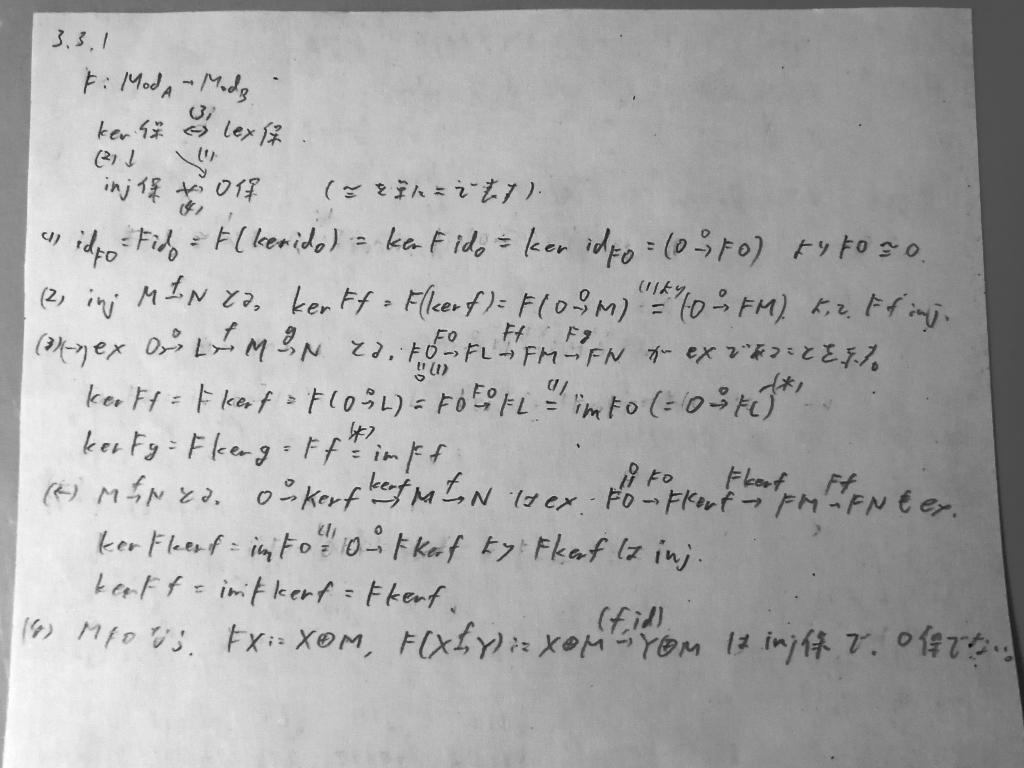 3.3.1
F : Mod_A → Mod_B
(3)
ker保 ⇔ lex保
(2) ↓ ↘ (1)
inj保 ↛ 0保 (≅を単に=で表す).
(4)
(1) id_F0 = F id_0 = F(ker id_0) = ker F id_0 = ker id_F0 = (0 →^0 F0) より F0 ≅ 0.
(2) inj M →^f N とる, ker Ff = F(ker f) = F(0 →^0 M) =^(1)より (0 →^0 FM). よって Ff inj.
(3)(→) ex 0 →^0 L →^f M →^g N とる. F0 →^F0 FL →^Ff FM →^Fg FN が ex であることを示す。
ker Ff = F ker f = F(0 →^0 L) = F0 →^F0 FL =^(1) im F0 (= 0 →^0 FL) (*)
ker Fg = F ker g = Ff =^(*) im Ff
(←) M →^f N とる. 0 →^0 Ker f →^ker f M →^f N は ex. F0 →^F0 FKer f →^Fker f FM →^Ff FN も ex.
ker F ker f = im F0 =^(1) 0 →^0 F Ker f より F ker f は inj.
ker Ff = im F ker f = F ker f.
(4) M≠0 なら. FX := X⊕M, F(X →^f Y) := X⊕M →^(f,id) Y⊕M は inj保で. 0保でない.